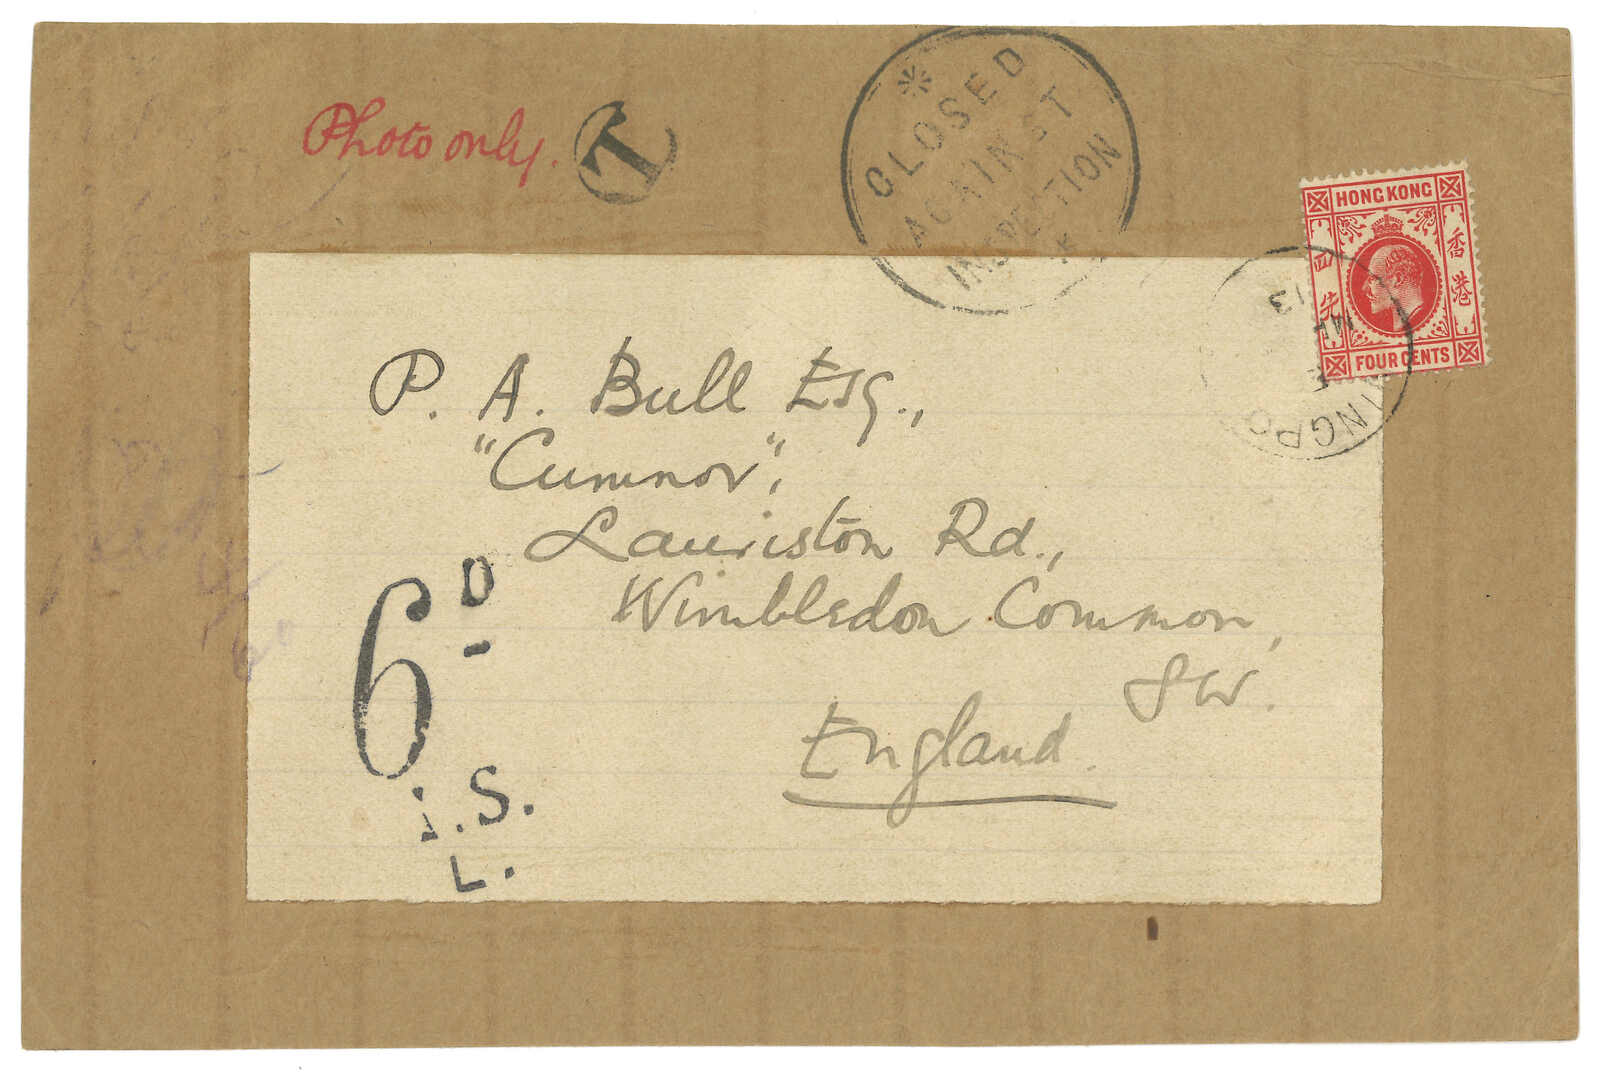 Photo only.
T
* CLOSED
AGAINST
INSPECTION
*
HONG KONG
香港
四先
FOUR CENTS
13
P. A. Bull Esq.,
"Cumnor",
Lauriston Rd.,
Wimbledon Common,
SW.
England.
6D
I.S.
L.